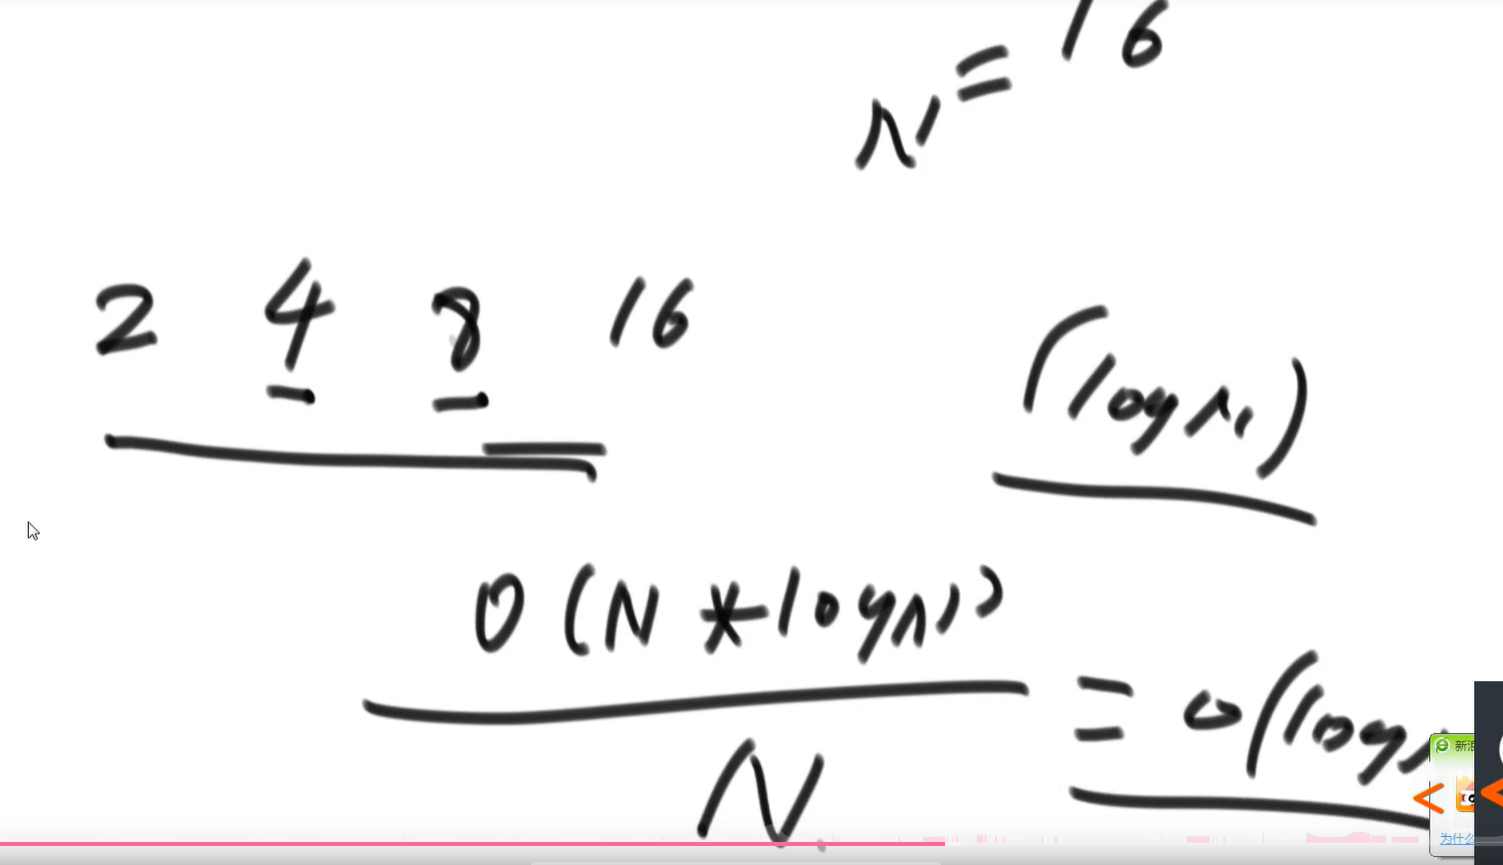 N = 16
2 4 8 16
(logN)
O(N*logN)
N
= O(log
新浪
为什么